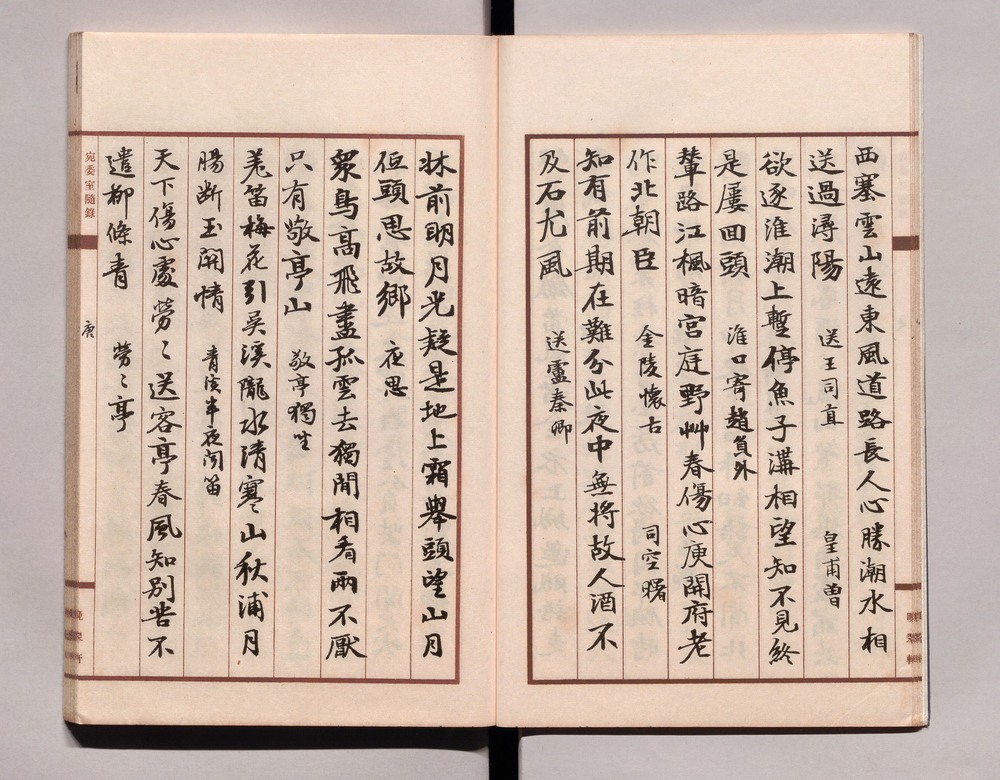 西塞雲山遠東風道路長人心勝潮水相
送過潯陽　送王司直　皇甫曾
欲逐淮潮上暫停魚子溝相望知不見終
是屢回頭　淮口寄趙員外
輦路江楓暗宮庭野艸春傷心庾開府老
作北朝臣　金陵懷古　司空曙
知有前期在難分此夜中無將故人酒不
及石尤風　送盧秦卿
牀前明月光疑是地上霜舉頭望山月
低頭思故鄉　夜思
眾鳥高飛盡孤雲去獨閒相看兩不厭
只有敬亭山　敬亭獨坐
羌笛梅花引吳溪隴水清寒山秋浦月
腸斷玉關情　青溪半夜聞笛
天下傷心處勞〻送客亭春風知別苦不
遣柳條青　勞〻亭
宛委室隨錄
庚